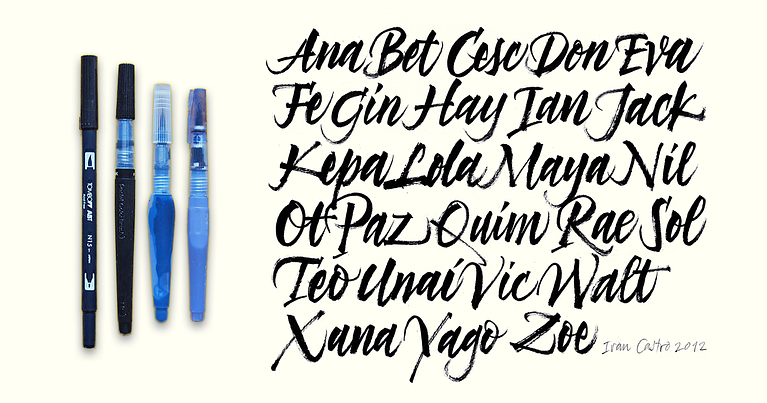 TOMBOW ABT
N15
Ana Bet Cesc Don Eva
Fe Gin Hay Ian Jack
Kepa Lola Maya Nil
Ot Paz Quim Rae Sol
Teo Unai Vic Walt
Xana Yago Zoe
Ivan Castro 2012